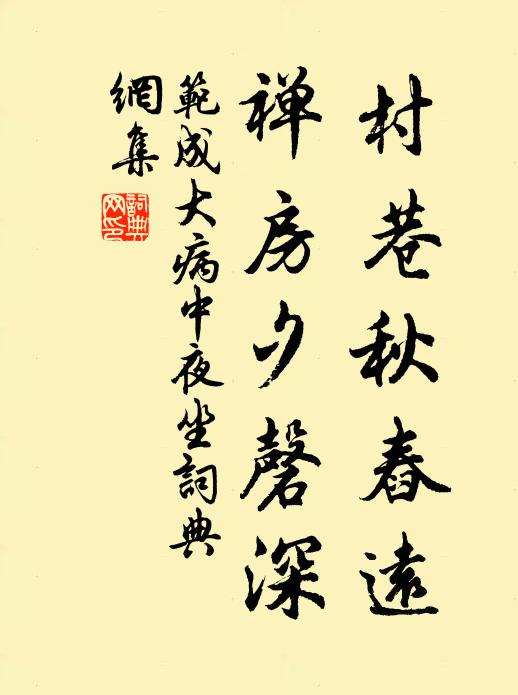 村巷秋舂遠
禅房夕磬深
範成大病中夜坐詞典
網集
詞典網印